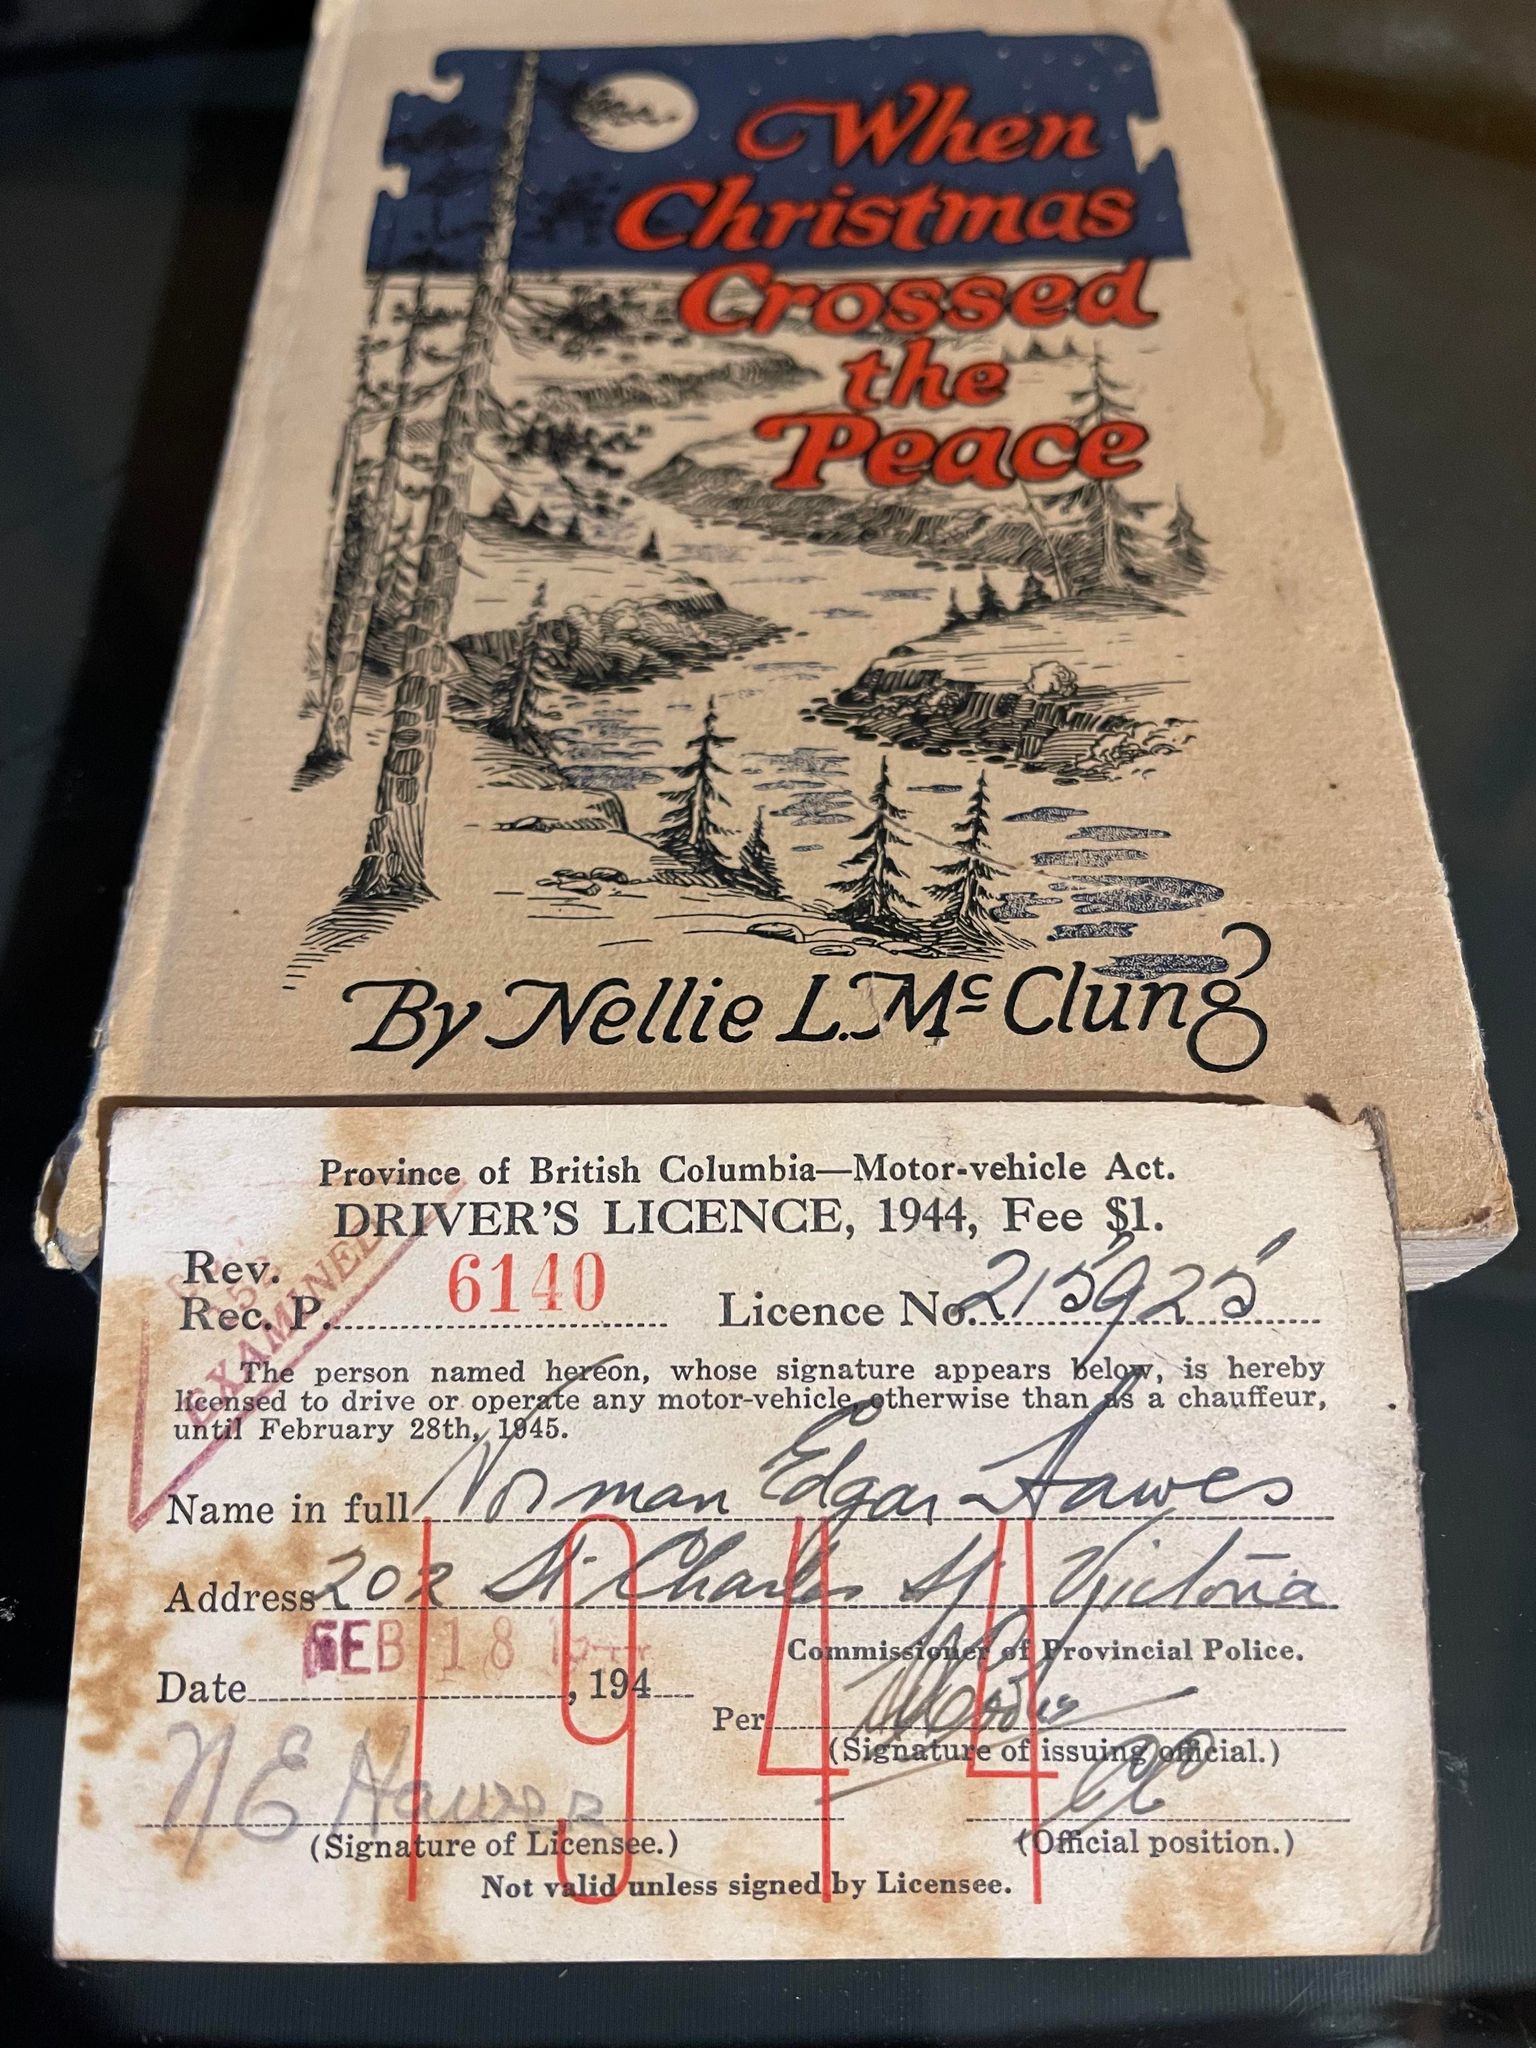 When
Christmas
Crossed
the
Peace
By Nellie L. McClung
Province of British Columbia—Motor-vehicle Act.
DRIVER'S LICENCE, 1944, Fee $1.
Rev.
Rec. P. 6140 Licence No. 215925
EXAMINED
The person named hereon, whose signature appears below, is hereby
licensed to drive or operate any motor-vehicle, otherwise than as a chauffeur,
until February 28th, 1945.
Name in full Norman Edgar Hawes
Address 202 St Charles St Victoria
1944
FEB 18
Commissioner of Provincial Police.
Date , 194
Per
(Signature of issuing official.)
N E Hawes
(Signature of Licensee.) (Official position.)
Not valid unless signed by Licensee.